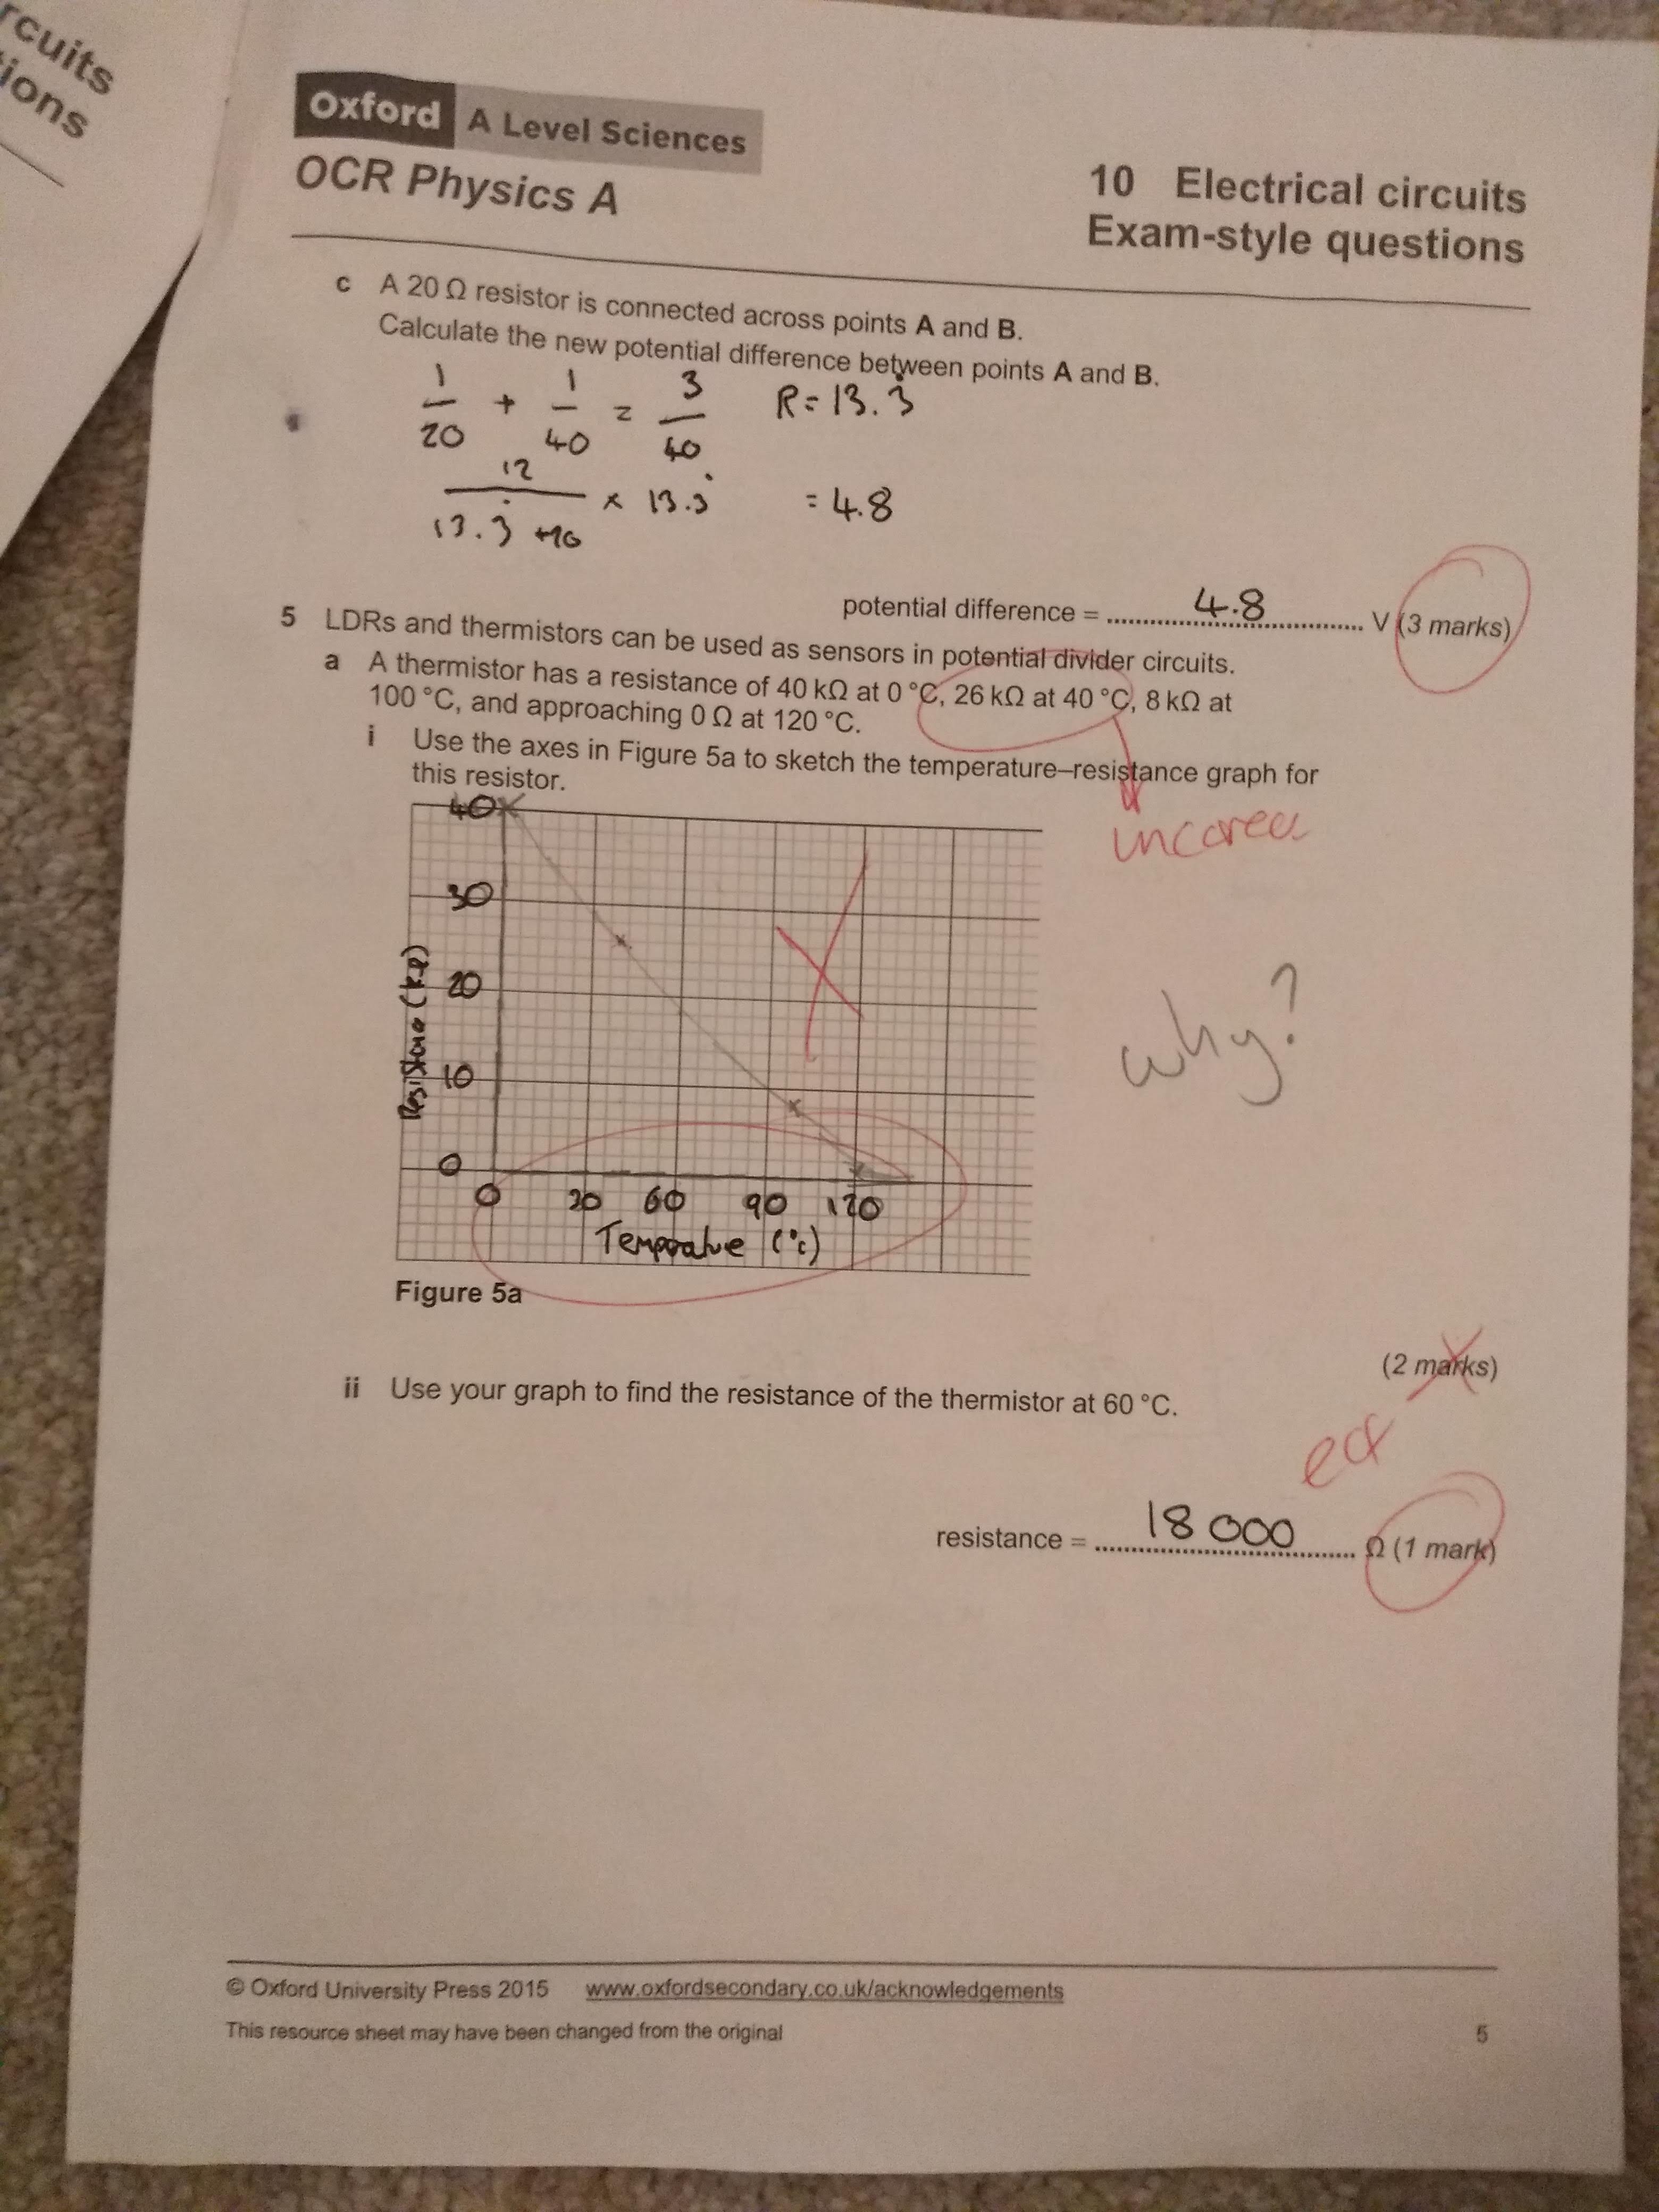 rcuits
ions
Oxford A Level Sciences
OCR Physics A
10 Electrical circuits
Exam-style questions
c A 20 Ω resistor is connected across points A and B.
Calculate the new potential difference between points A and B.
1/20 + 1/40 = 3/40 R = 13.3̇
12/(13.3̇ + 10) × 13.3̇ = 4.8
potential difference = 4.8 V (3 marks)
5 LDRs and thermistors can be used as sensors in potential divider circuits.
a A thermistor has a resistance of 40 kΩ at 0 °C, 26 kΩ at 40 °C, 8 kΩ at
100 °C, and approaching 0 Ω at 120 °C.
i Use the axes in Figure 5a to sketch the temperature–resistance graph for
this resistor.
40
30
20
10
0
Resistance (kΩ)
0 30 60 90 120
Temperature (°c)
why?
Figure 5a
(2 marks)
ii Use your graph to find the resistance of the thermistor at 60 °C.
ecf
resistance = 18 000 Ω (1 mark)
© Oxford University Press 2015 www.oxfordsecondary.co.uk/acknowledgements
This resource sheet may have been changed from the original
5